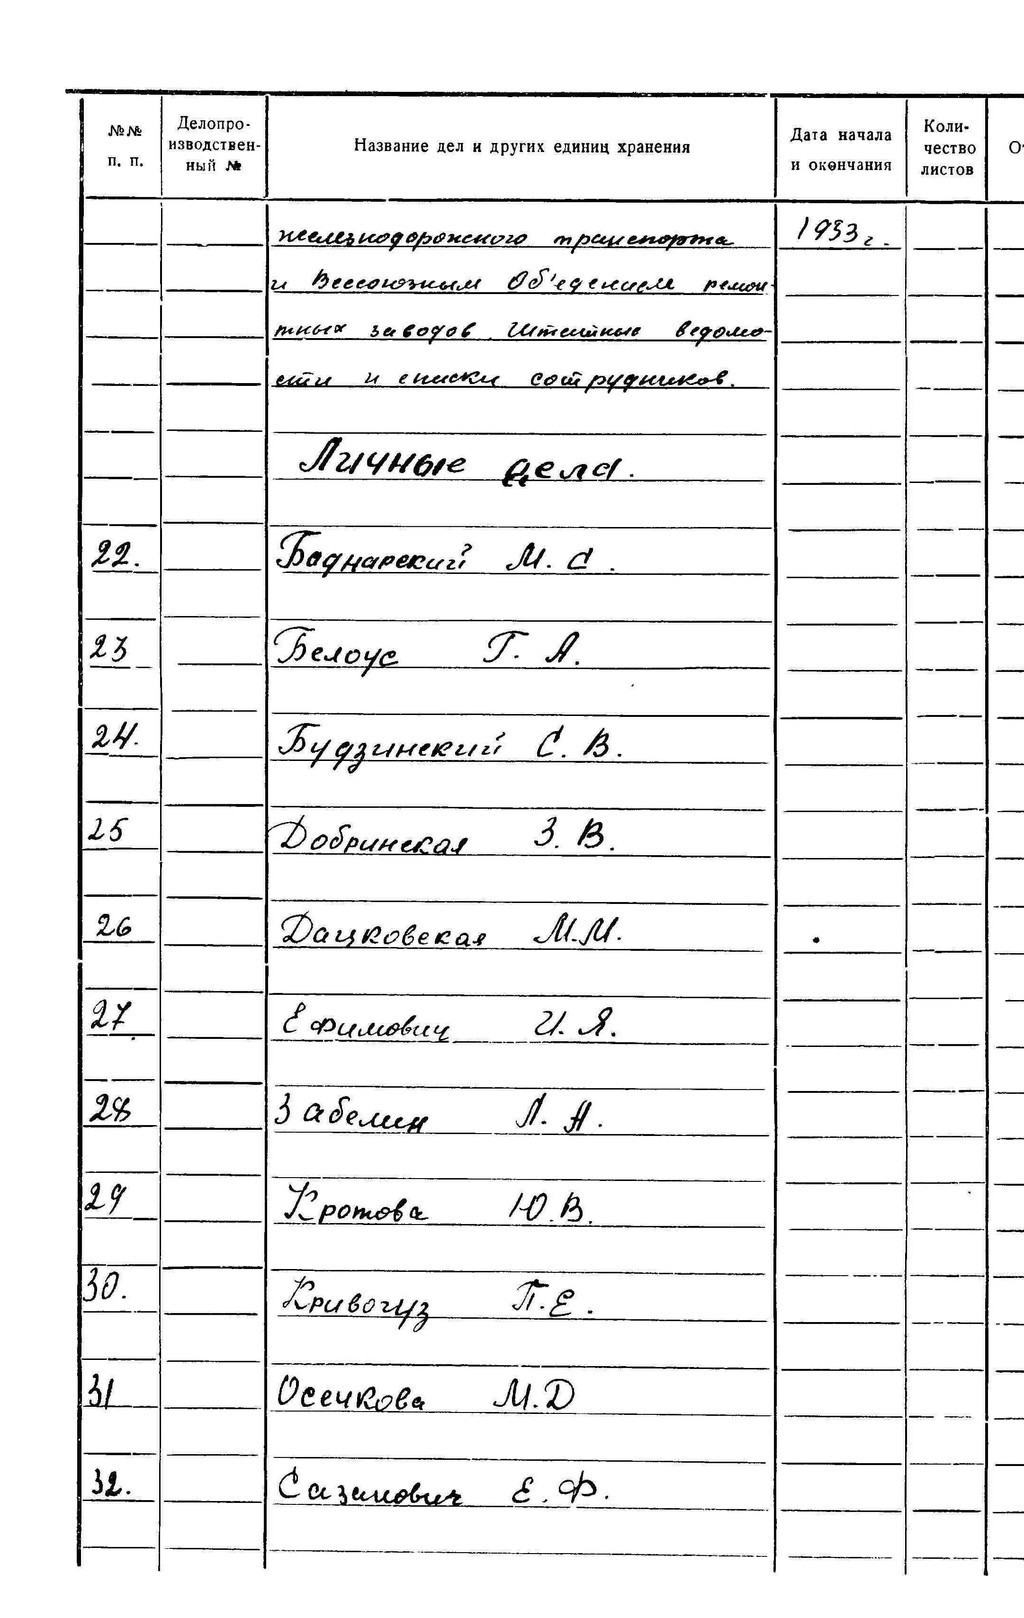 №№ п. п. Делопро- изводствен- ный № Название дел и других единиц хранения Дата начала и окончания Коли- чество листов О
железнодорожного транспорта 1933 г.
и Всесоюзным Об'едением ремон-
тных заводов. Штатные ведомо-
сти и списки сотрудников.
Личные дела.
22. Боднарский М. С.
23 Белоус Г. А.
24. Будзинский С. В.
25 Добринская З. В.
26 Дацковская М.М.
27 Ефимович И. Я.
28 Забелин Л. А.
29 Кротова Ю.В.
30. Кривогуз П.Е.
31 Осечкова М.Д
32. Сазанович Е.Ф.